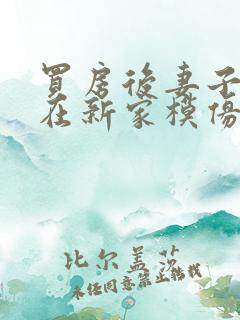 買房後妻子
在新家模傷
比尔盖茨
未经同意禁止转载